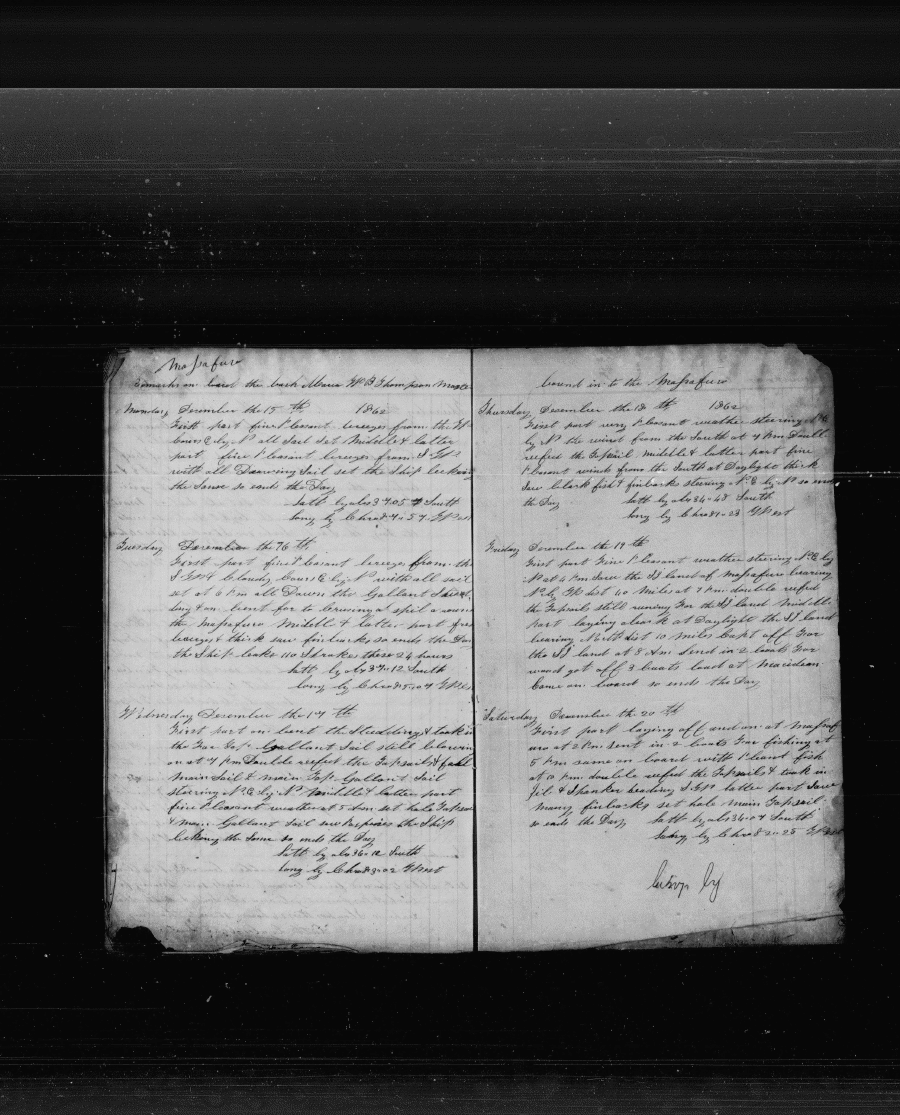 Massafuro
Remarks on board the bark Maria W B Thompson Master
Monday December the 15 th 1862
First part fine Pleasant breeses from the W
Cours E by N all sail set Middle & latter
part fine Pleasant breeses from S W
with all Drawing Sail set the Ship leeking
the Same so ends the Day
Latt by obs 37=05 South
Long by Chro
Tuesday December the 16 th
First part fine Pleasant breeses from the
S W Cloudy Cours E by N with all sail
set at 6 Pm all Down the Gallant
bent for to
the Massafuro Middle & latter part fresh
breeses & thick saw finbacks so ends the Day
the Ship leeks 110 Strokes these 24 hours
Latt by obs 37=12 South
Long by Chro West
Wednesday December the 17 th
First part on bent the Studding & took in
the For Top Gallant Sail still blowin
on at 7 Pm Double reefed the Topsails &
Main Sail & Main Top Gallant Sail
steering N E by N middle & latter part
fine Pleasant weather at 5 Am set hole Topsail
& Main Gallant Sail saw the Ship
leeking the Same so ends the Day
Latt by obs 36=12 South
Long by Chro West
bound in to the Massafuro
Thursday December the 18 th 1862
First part very Pleasant weather steering N E
by N the wind from the South at 7 Pm Doubl
reefed the Topsail middle & latter part fine
Pleasant winds from the South at Daylight thick
saw blackfish & finbacks steering N E by N so ends
the Day Latt by obs 34=48 South
Long by Chro West
Friday December the 19 th
First part Fine Pleasant weather steering N E by
N at 6 Pm Saw the Island of Massafuro bearing
dist 40 Miles at 7 Pm double reefed
the Topsails still runing For the Island Middle
part laying aback at Daylight the Island
bearing North dist 10 Miles Kept off For
the Island at 8 Am Send in 2 boats For
wood got off 3 boats load at Meridean
Come on board so ends the Day
Saturday December the 20 th
First part laying off and on at Massaf
uro at 2 Pm sent in 2 boats For fishing at
5 Pm came on board with Plenty fish
at 10 Pm double reefed the Topsails & took in
Jib & Spanker heading S W latter part Saw
Many finbacks set hole Main Topsail
so ends the Day Latt by obs 34=04 South
Long by Chro West